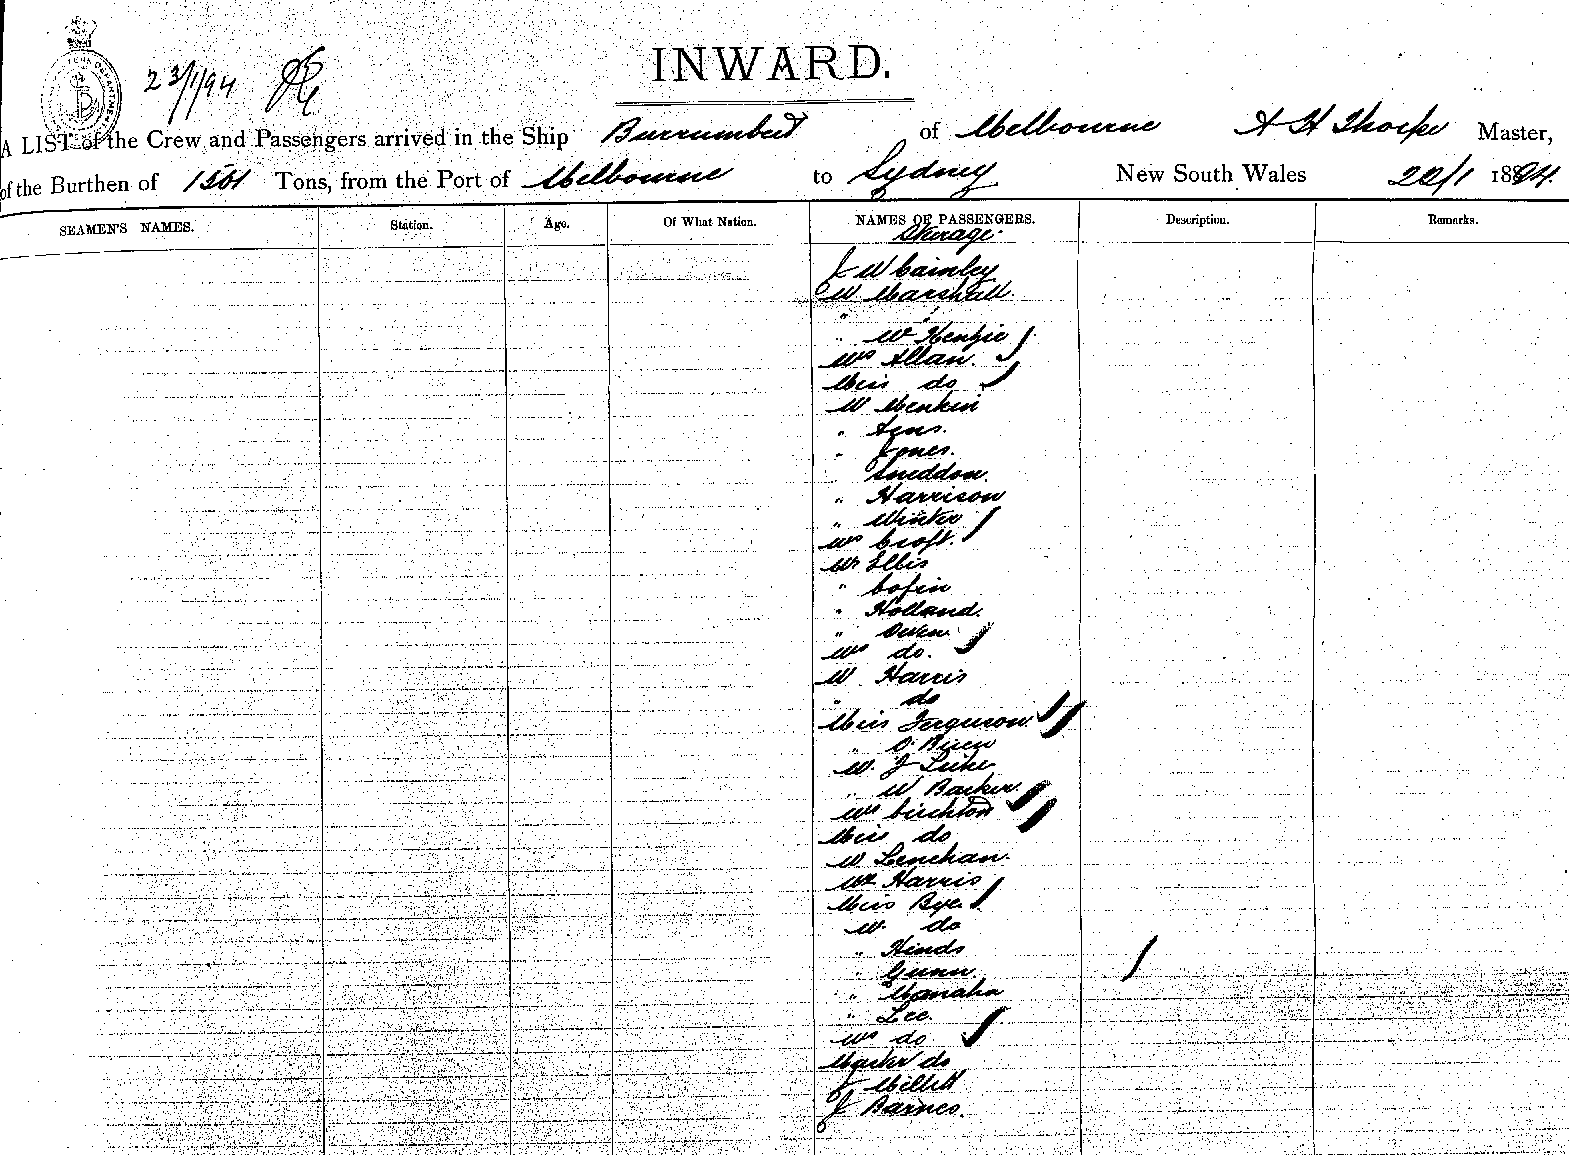 23/1/94
INWARD.
A LIST of the Crew and Passengers arrived in the Ship Burrumbeet of Melbourne A H Thorpe Master,
of the Burthen of Tons, from the Port of Melbourne to Sydney New South Wales 22/1 1894.
SEAMEN'S NAMES. Station. Age. Of What Nation. NAMES OF PASSENGERS. Description. Remarks.
Steerage
J W Cainley
Mr Marshall.
" "
" W Kenzie
Mrs Allan.
Miss do
Mr Menkin
"
" Jones.
Sneddon.
" Harrison
" Winter
Mrs Croft.
Mr Ellis
" Cofin
" Holland.
" Owen
Mrs do.
Mr Harris
" do
Miss Ferguson.
" O'Brien
Mr. J Luke
" W Barker.
Mrs
Miss do
Mr Lenehan.
Mr Harris
Miss Bye
Mr. do
" Hinds
" Gunn
" Manaha
" Lee.
Mrs do
Master do
J Millett
J Barnes.